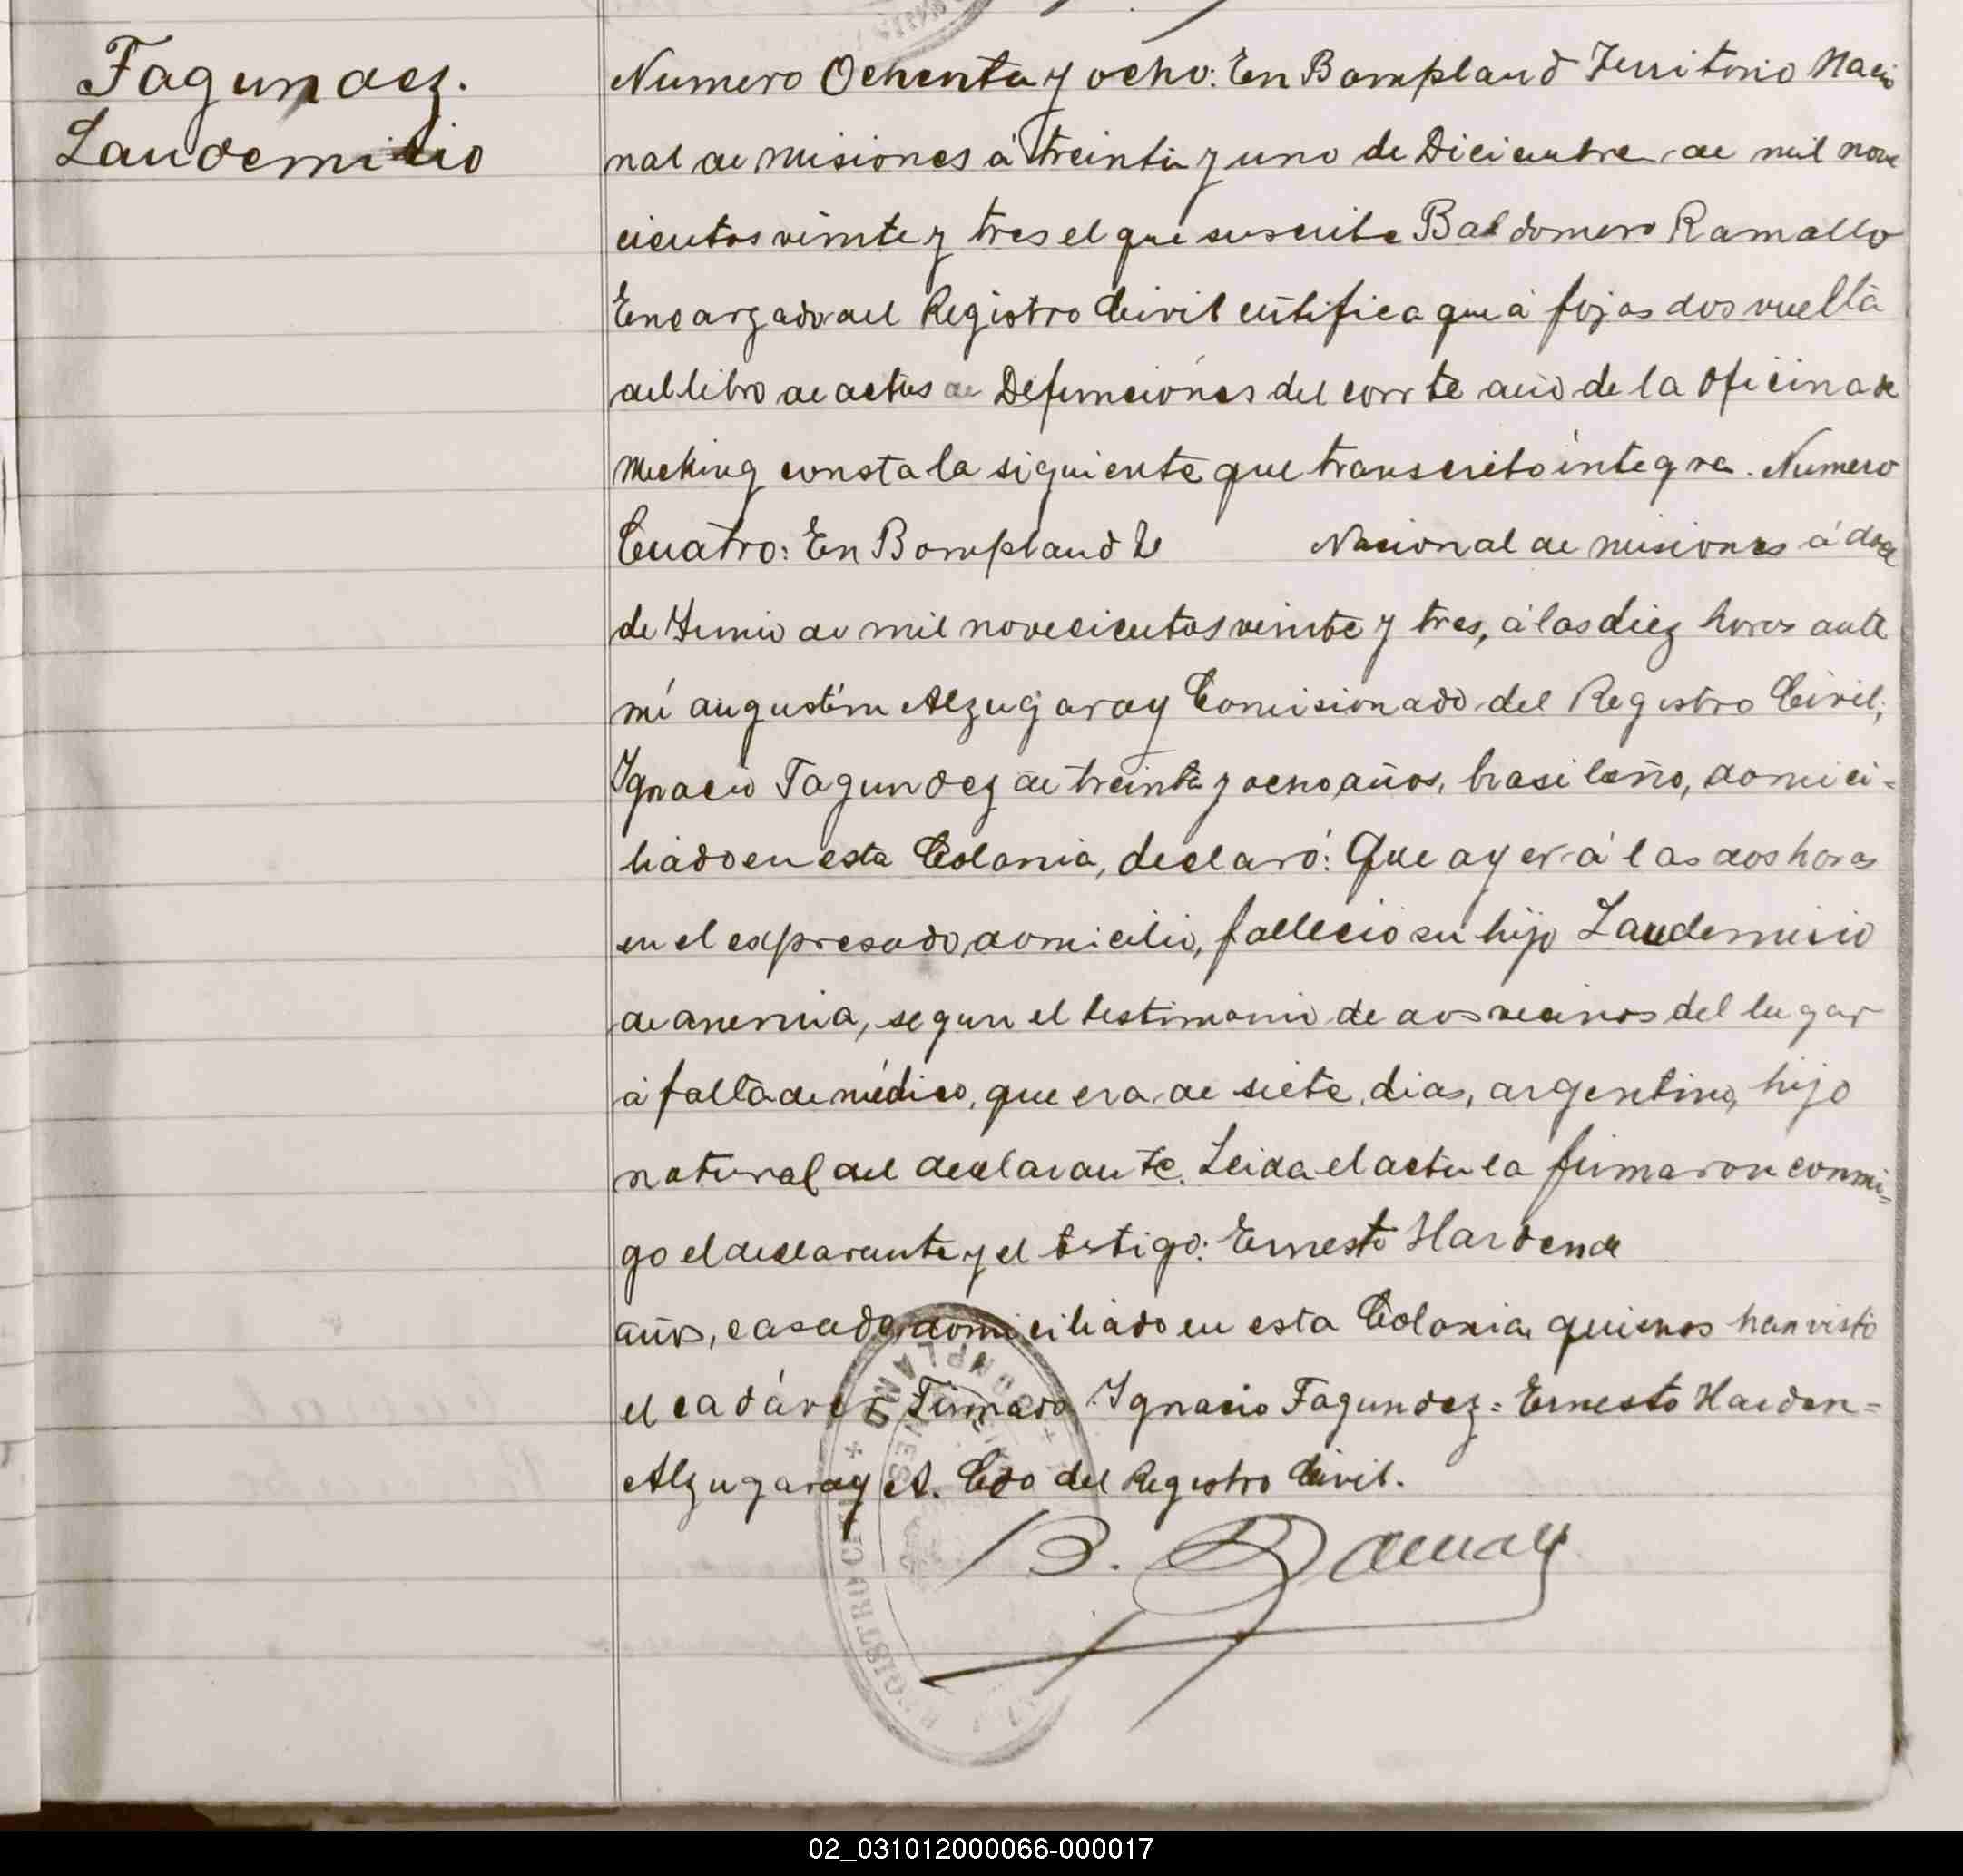 Fagundez.
Laudemicio
Numero Ochenta y ocho: En Bompland Territorio Nacio
nal de misiones á treinta y uno de Diciembre de mil nove
cientos veinte y tres el que suscribe Baldomero Ramallo
Encargado del Registro Civil certifica que á fojas dos vuelta
del libro de actas de Defunciones del corrte año de la oficina de
Mecking consta la siguiente que transcrito íntegra. Numero
Cuatro: En Bompland Nacional de misiones á doce
de Junio de mil novecientos veinte y tres, á las diez horas ante
mí augustin Alzugaray Comisionado del Registro Civil;
Ygnacio Fagundez de treinta y ocho años, brasileño, domici-
liado en esta Colonia, declaró: Que ayer á las dos horas
en el expresado domicilio, fallecio su hijo Laudemicio
de anemia, segun el testimonio de dos vecinos del lugar
á falta de médico, que era de siete dias, argentino, hijo
natural del declarante. Leida el acta la firmaron conmi-
go el declarante y el testigo: Ernesto Harden de
años, casado, domiciliado en esta Colonia quienes han visto
el cadáver Firmado: Ygnacio Fagundez = Ernesto Harden =
Alzugaray A. Cdo del Registro Civil.
BONPLAND
MISIONES
REGISTRO CIVIL
B. Ramallo
02_031012000066-000017